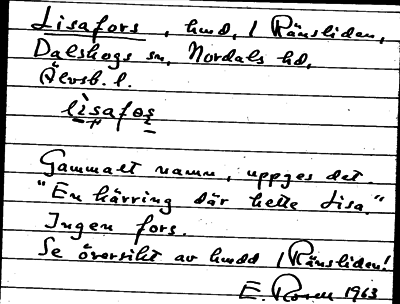 Lisafors, hmd, / Ränsliden,
Dalskogs sn, Nordals hd,
Älvsb. l.
lìsafoş
Gammalt namn, uppges det.
"En kärring där hette Lisa."
Ingen fors.
Se översikt av hmdd / Ränsliden!
E. Rosen 1963